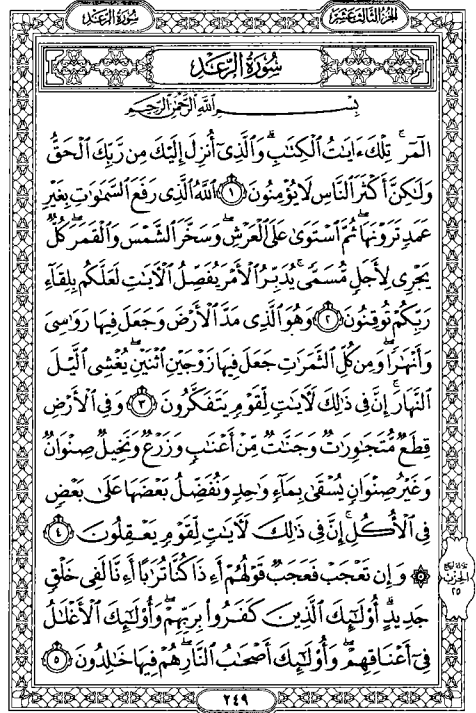 الجزء الثالث عشر
سورة الرعد
سُورَةُ الرَّعْد
بِسْمِ ٱللَّهِ ٱلرَّحْمَٰنِ ٱلرَّحِيمِ
الٓمٓر ۚ تِلْكَ ءَايَٰتُ ٱلْكِتَٰبِ ۗ وَٱلَّذِىٓ أُنزِلَ إِلَيْكَ مِن رَّبِّكَ ٱلْحَقُّ
وَلَٰكِنَّ أَكْثَرَ ٱلنَّاسِ لَا يُؤْمِنُونَ ١ ٱللَّهُ ٱلَّذِى رَفَعَ ٱلسَّمَٰوَٰتِ بِغَيْرِ
عَمَدٍ تَرَوْنَهَا ۖ ثُمَّ ٱسْتَوَىٰ عَلَى ٱلْعَرْشِ ۖ وَسَخَّرَ ٱلشَّمْسَ وَٱلْقَمَرَ ۖ كُلٌّ
يَجْرِى لِأَجَلٍ مُّسَمًّى ۚ يُدَبِّرُ ٱلْأَمْرَ يُفَصِّلُ ٱلْءَايَٰتِ لَعَلَّكُم بِلِقَآءِ
رَبِّكُمْ تُوقِنُونَ ٢ وَهُوَ ٱلَّذِى مَدَّ ٱلْأَرْضَ وَجَعَلَ فِيهَا رَوَٰسِىَ
وَأَنْهَٰرًا ۖ وَمِن كُلِّ ٱلثَّمَرَٰتِ جَعَلَ فِيهَا زَوْجَيْنِ ٱثْنَيْنِ ۖ يُغْشِى ٱلَّيْلَ
ٱلنَّهَارَ ۚ إِنَّ فِى ذَٰلِكَ لَءَايَٰتٍ لِّقَوْمٍ يَتَفَكَّرُونَ ٣ وَفِى ٱلْأَرْضِ
قِطَعٌ مُّتَجَٰوِرَٰتٌ وَجَنَّٰتٌ مِّنْ أَعْنَٰبٍ وَزَرْعٌ وَنَخِيلٌ صِنْوَانٌ
وَغَيْرُ صِنْوَانٍ يُسْقَىٰ بِمَآءٍ وَٰحِدٍ وَنُفَضِّلُ بَعْضَهَا عَلَىٰ بَعْضٍ
فِى ٱلْأُكُلِ ۚ إِنَّ فِى ذَٰلِكَ لَءَايَٰتٍ لِّقَوْمٍ يَعْقِلُونَ ٤
۞ وَإِن تَعْجَبْ فَعَجَبٌ قَوْلُهُمْ أَءِذَا كُنَّا تُرَٰبًا أَءِنَّا لَفِى خَلْقٍ
جَدِيدٍ ۗ أُو۟لَٰٓئِكَ ٱلَّذِينَ كَفَرُوا۟ بِرَبِّهِمْ ۖ وَأُو۟لَٰٓئِكَ ٱلْأَغْلَٰلُ
فِىٓ أَعْنَاقِهِمْ ۖ وَأُو۟لَٰٓئِكَ أَصْحَٰبُ ٱلنَّارِ ۖ هُمْ فِيهَا خَٰلِدُونَ ٥
الحزب
٢٥
٢٤٩